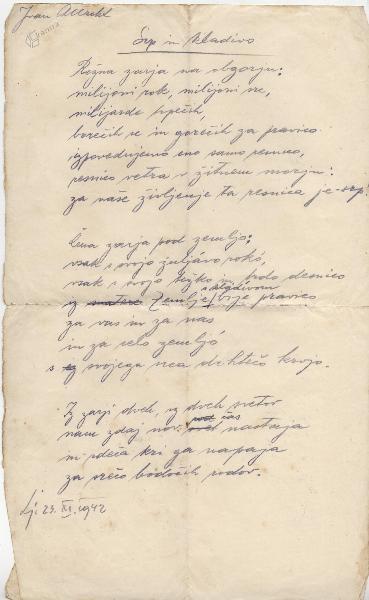 Ivan Albreht
Kamra
Srp in kladivo
Rožna zarja na obzorju:
milijoni rok, milijoni src,
milijarde trpečih,
borečih se in gorečih za pravico
izpovedujemo eno samo resnico,
resnico vetra v žitnem morju:
za naše življenje ta resnica je - srp!
Črna zarja pod zemljo:
vsak s svojo žuljavo roko,
vsak s svojo težko in trdo desnico
s kladivom
iz zemlje, kuje pravico
za vas in za nas
in za vso zemljó
s svojega srca drhtečo krvjo.
Iz zarij dveh, iz dveh svetov
čas
nam zdaj nov nastaja
in rdeča kri ga napaja
za srečo bodočih rodov.
Lj. 23. XI. 1942